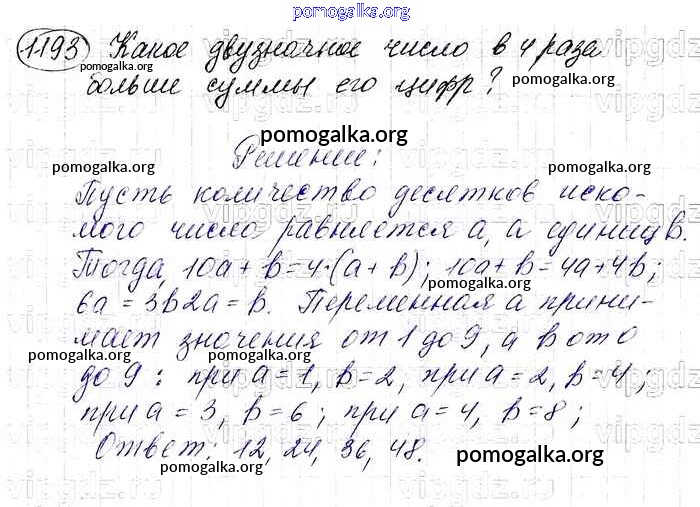 pomogalka.org
1193 Какое двузначное число в 4 раза
больше суммы его цифр?
pomogalka.org
pomogalka.org
pomogalka.org
pomogalka.org
Решение:
pomogalka.org
pomogalka.org
Пусть количество десятков иско-
мого число равняется a, а единиц b.
pomogalka.org
pomogalka.org
Тогда, 10a + b = 4·(a + b); 10a + b = 4a + 4b;
6a = 3b 2a = b. Переменная a прини-
мает значения от 1 до 9, а b от 0
pomogalka.org
pomogalka.org
pomogalka.org
до 9: при a = 1, b = 2, при a = 2, b = 4;
при a = 3, b = 6; при a = 4, b = 8;
Ответ: 12, 24, 36, 48.
pomogalka.org
pomogalka.org